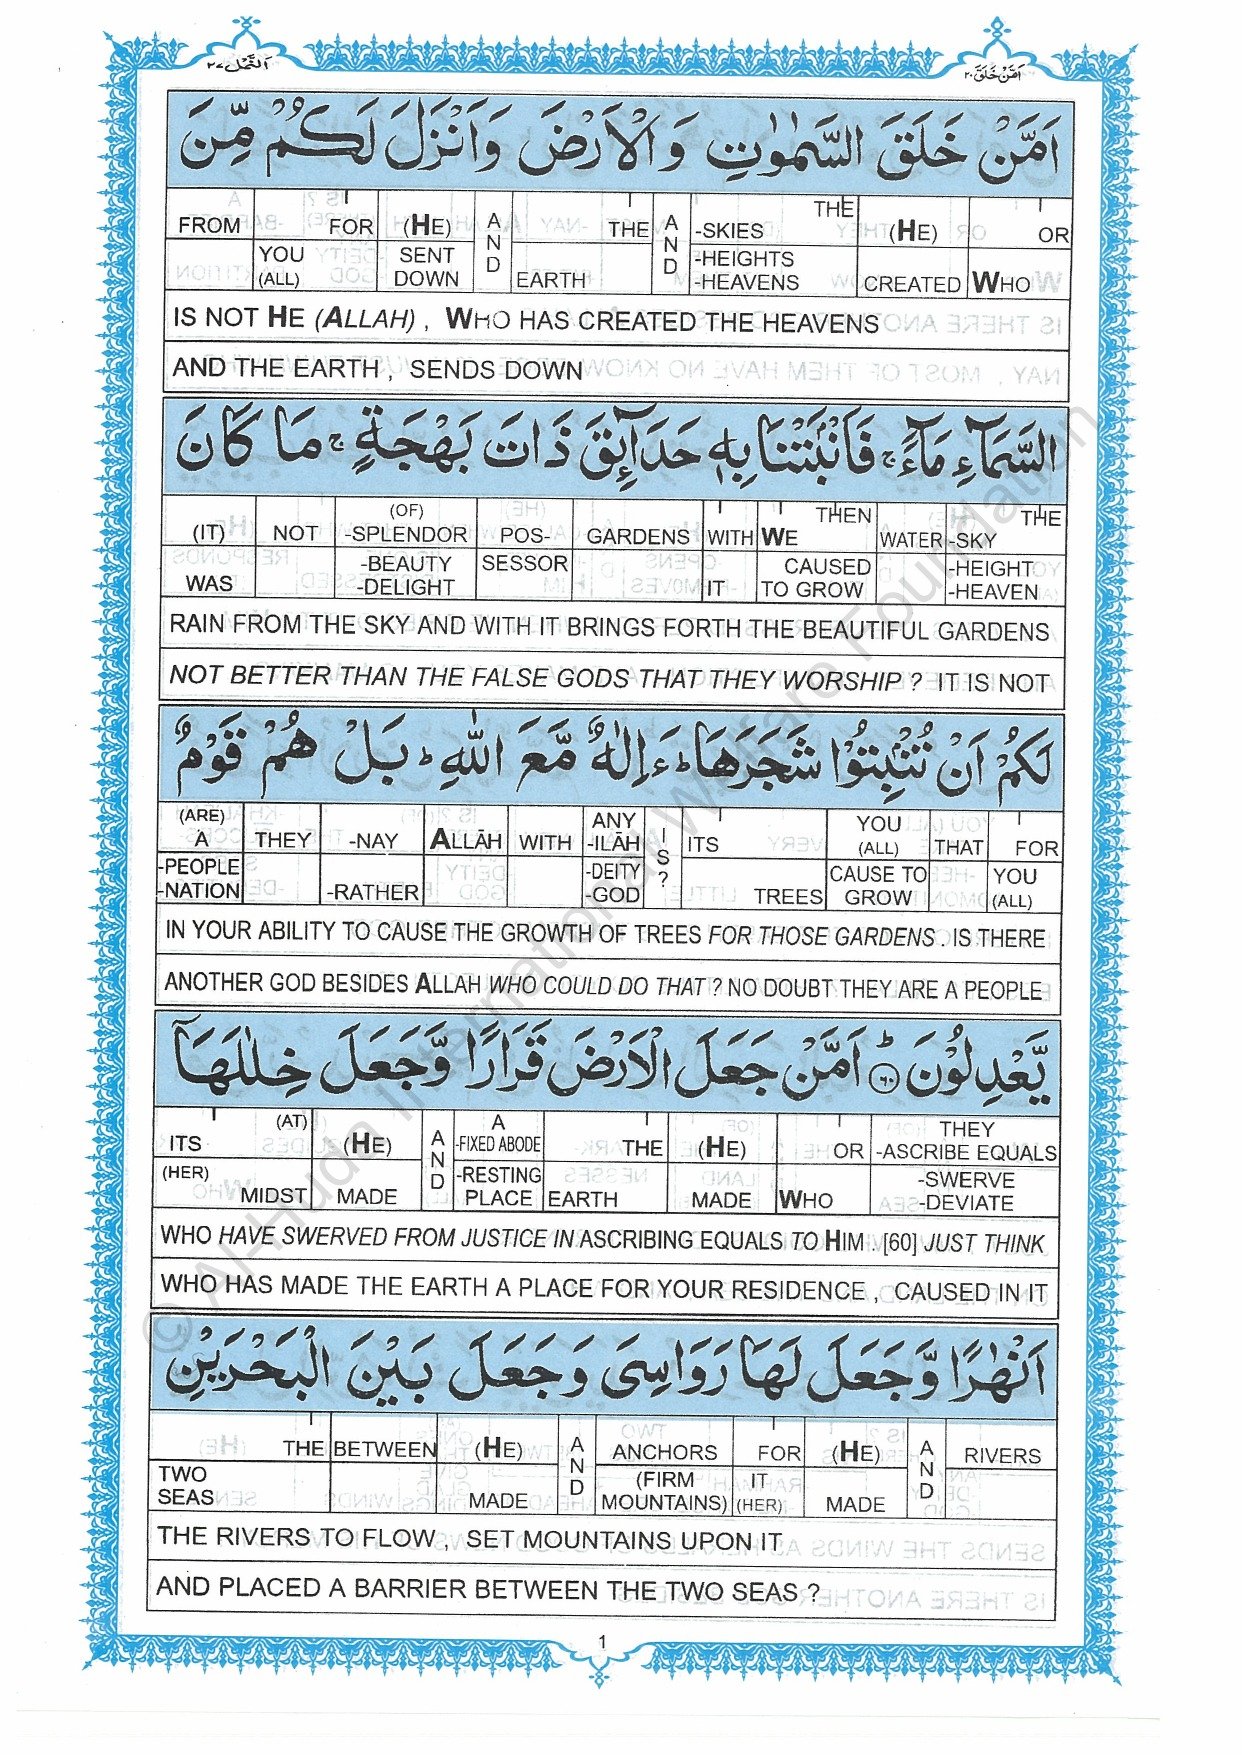 اَمَّنْ خَلَقَ ٢٠
اَلنَّمْل ٢٧
اَمَّنْ خَلَقَ السَّمٰوٰتِ وَالْاَرْضَ وَاَنْزَلَ لَكُمْ مِّنَ
FROM FOR (HE) AND THE AND -SKIES THE (HE) OR
YOU (ALL) SENT DOWN EARTH -HEIGHTS -HEAVENS CREATED WHO
IS NOT HE (ALLAH) , WHO HAS CREATED THE HEAVENS
AND THE EARTH , SENDS DOWN
السَّمَآءِ مَآءً ۚ فَاَنْۢبَتْنَا بِهٖ حَدَآئِقَ ذَاتَ بَهْجَةٍ ۚ مَا كَانَ
(IT) NOT (OF) -SPLENDOR POS- GARDENS WITH WE THEN WATER -SKY THE
WAS -BEAUTY -DELIGHT SESSOR IT CAUSED TO GROW -HEIGHT -HEAVEN
RAIN FROM THE SKY AND WITH IT BRINGS FORTH THE BEAUTIFUL GARDENS
NOT BETTER THAN THE FALSE GODS THAT THEY WORSHIP ? IT IS NOT
لَكُمْ اَنْ تُنْۢبِتُوْا شَجَرَهَا ؕ ءَاِلٰهٌ مَّعَ اللّٰهِ ؕ بَلْ هُمْ قَوْمٌ
(ARE) A THEY -NAY ALLĀH WITH ANY -ILĀH IS? ITS YOU (ALL) THAT FOR
-PEOPLE -NATION -RATHER -DEITY -GOD TREES CAUSE TO GROW YOU (ALL)
IN YOUR ABILITY TO CAUSE THE GROWTH OF TREES FOR THOSE GARDENS . IS THERE
ANOTHER GOD BESIDES ALLAH WHO COULD DO THAT ? NO DOUBT THEY ARE A PEOPLE
يَّعْدِلُوْنَ ؕ ٦٠ اَمَّنْ جَعَلَ الْاَرْضَ قَرَارًا وَّجَعَلَ خِلٰلَهَاۤ
ITS (AT) (HE) AND A -FIXED ABODE THE (HE) OR THEY -ASCRIBE EQUALS
(HER) MIDST MADE -RESTING PLACE EARTH MADE WHO -SWERVE -DEVIATE
WHO HAVE SWERVED FROM JUSTICE IN ASCRIBING EQUALS TO HIM . [60] JUST THINK
WHO HAS MADE THE EARTH A PLACE FOR YOUR RESIDENCE , CAUSED IN IT
اَنْهٰرًا وَّجَعَلَ لَهَا رَوَاسِيَ وَجَعَلَ بَيْنَ الْبَحْرَيْنِ
THE BETWEEN (HE) AND ANCHORS FOR (HE) AND RIVERS
TWO SEAS MADE (FIRM MOUNTAINS) IT (HER) MADE
THE RIVERS TO FLOW , SET MOUNTAINS UPON IT
AND PLACED A BARRIER BETWEEN THE TWO SEAS ?
1
© Al-Huda International Welfare Foundation